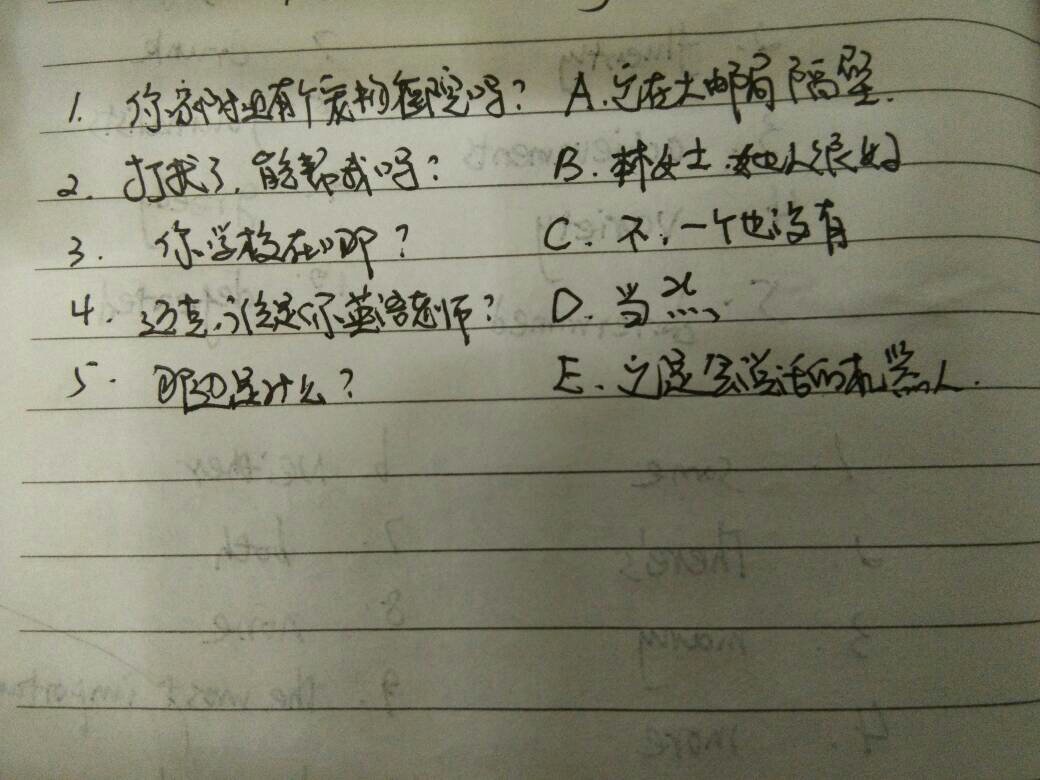 1. 你家附近有个宠物医院吗? A. 它在大邮局隔壁.
2. 打扰了, 能帮我吗? B. 林女士, 她人很好
3. 你学校在哪? C. 不, 一个也没有
4. 迈克, 谁是你英语老师? D. 当然
5. 那边是什么? E. 它是会说话的机器人.